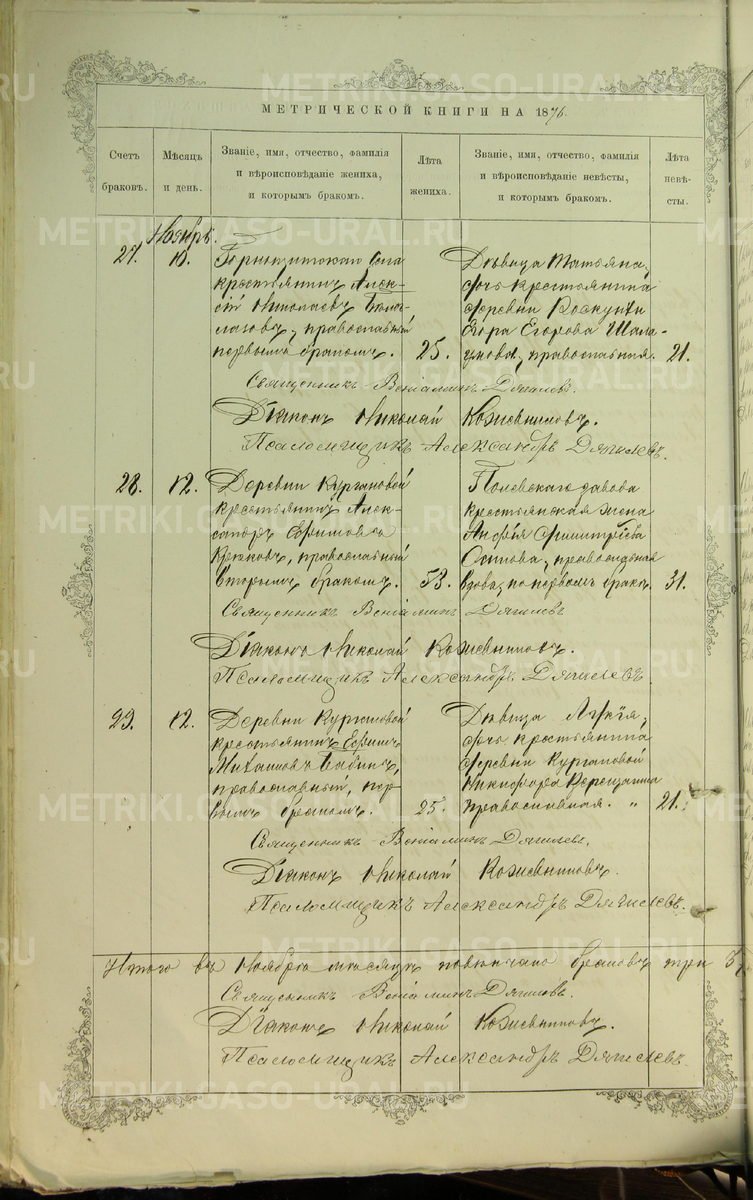 МЕТРИЧЕСКОЙ КНИГИ НА 1876.
Счетъ браковъ.
Мѣсяцъ и день.
Званіе, имя, отчество, фамилія
и вѣроисповѣданіе жениха,
и которымъ бракомъ.
Лѣта жениха.
Званіе, имя, отчество, фамилія
и вѣроисповѣданіе невѣсты,
и которымъ бракомъ.
Лѣта невѣсты.
Ноябрь.
27. 10.
села
крестьянинъ Алек-
сій Николаевъ Бѣло-
глазовъ, православный
первымъ бракомъ. 25.
Дѣвица Татьяна,
дочь крестьянина
деревни
Егора Егорова
православная. 21.
Священникъ Веніаминъ Дягилевъ.
Діаконъ Николай Кожевниковъ.
Псаломщикъ Александръ Дягилевъ.
28. 12. Деревни Кургановой
крестьянинъ Алек-
сандръ Ефимовъ
Крюковъ, православный
вторымъ бракомъ. 53.
Полевскаго завода
крестьянская жена
Димитріева
православная
вдова, по первомъ бракѣ. 31.
Священникъ Веніаминъ Дягилевъ
Діаконъ Николай Кожевниковъ.
Псаломщикъ Александръ Дягилевъ.
29. 12. Деревни Кургановой
крестьянинъ Ефимъ
Михаиловъ Бабинъ,
православный, пер-
вымъ бракомъ. 25.
Дѣвица Лукія,
дочь крестьянина
деревни Кургановой
Никифора Верещагина
православная. „ 21.
Священникъ Веніаминъ Дягилевъ.
Діаконъ Николай Кожевниковъ.
Псаломщикъ Александръ Дягилевъ.
Итого въ Ноябрѣ мѣсяцѣ повѣнчано браковъ три 3,
Священникъ Веніаминъ Дягилевъ.
Діаконъ Николай Кожевниковъ.
Псаломщикъ Александръ Дягилевъ.
METRIKI.GASO-URAL.RU